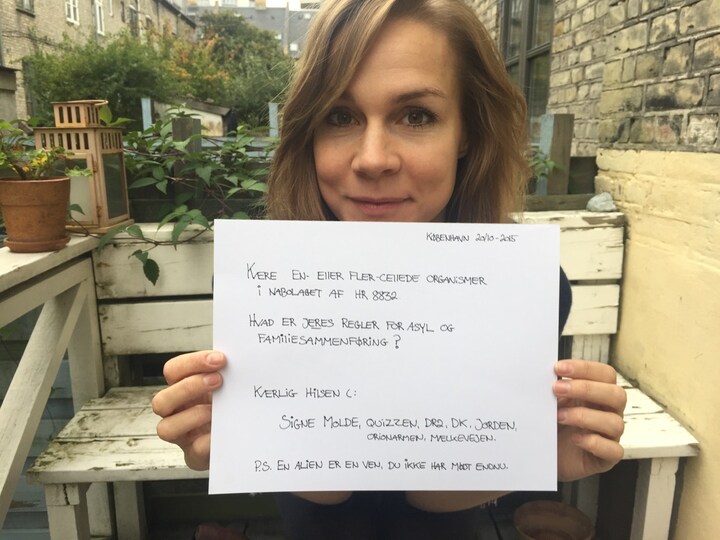 KØBENHAVN 20/10-2015
KÆRE EN- ELLER FLER-CELLEDE ORGANISMER
I NABOLAGET AF HR 8832
HVAD ER JERES REGLER FOR ASYL OG
FAMILIESAMMENFØRING?
KÆRLIG HILSEN (:
SIGNE MOLDE, QUIZZEN, DR2, DK, JORDEN,
ORIONARMEN, MÆLKEVEJEN.
P.S. EN ALIEN ER EN VEN, DU IKKE HAR MØDT ENDNU.